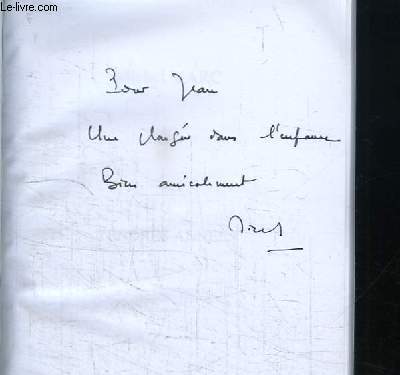 Le-livre.com
Pour Jean
Une plongée dans l'enfance
Bien amicalement